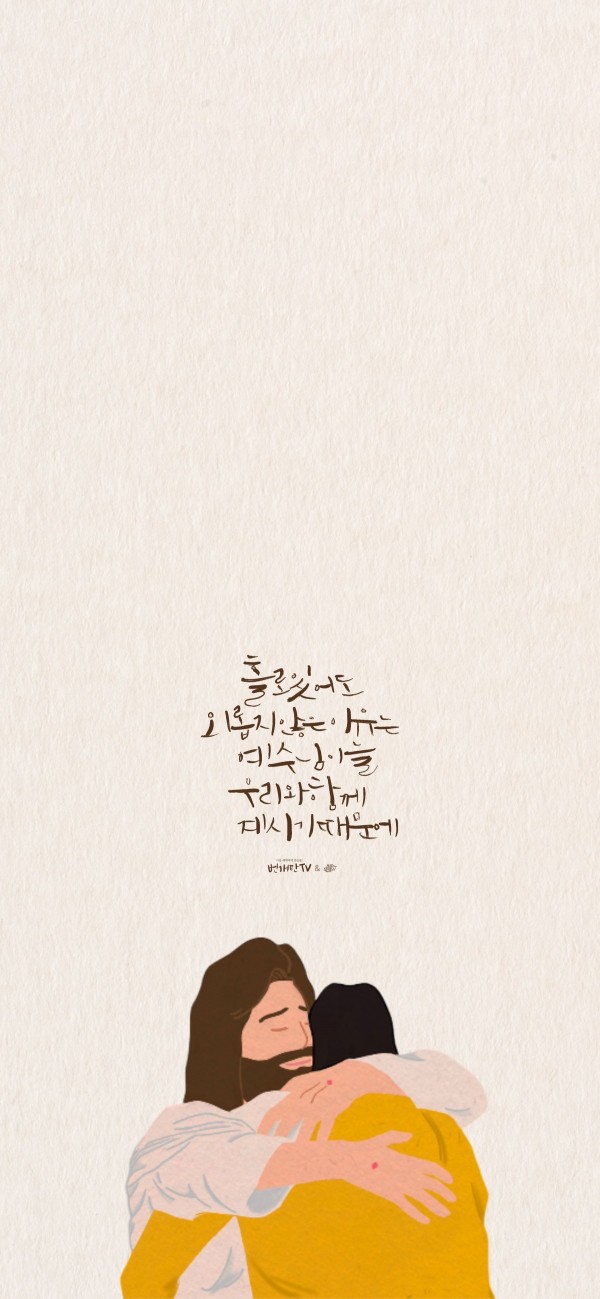 홀로있어도
외롭지않은 이유는
예수님이늘
우리와함께
계시기때문에
번개탄TV &